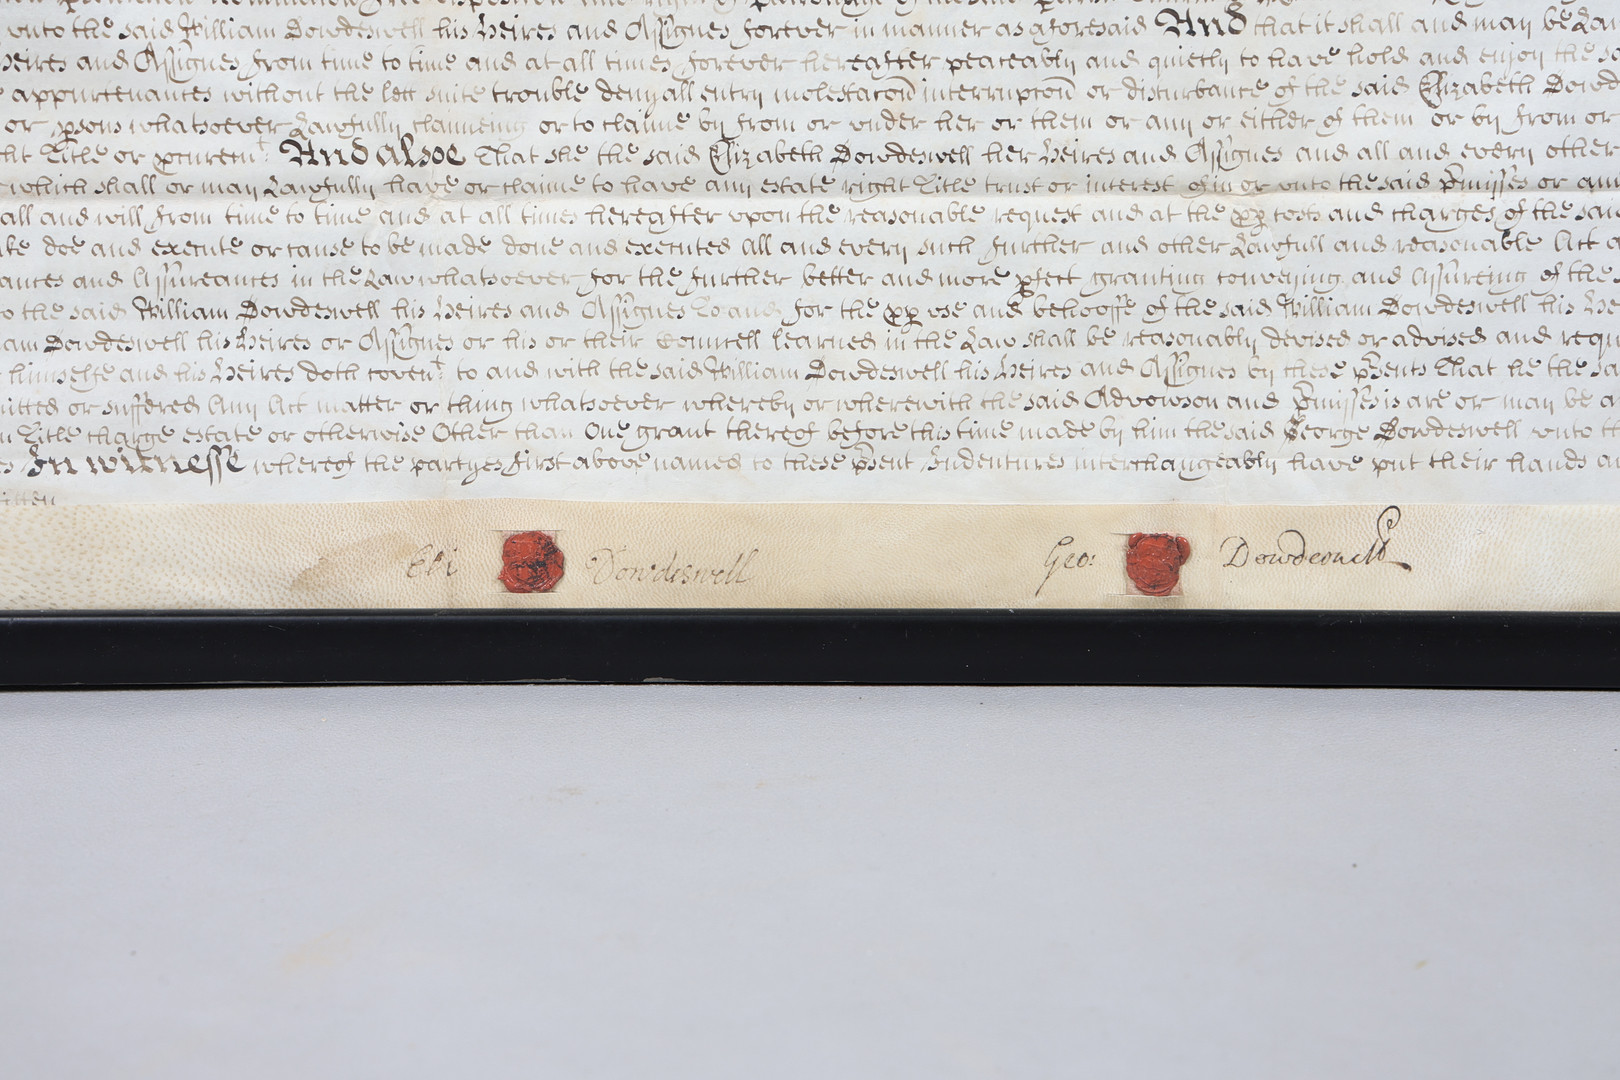 vnto the said William Dowdeswell his Heires and Assignes forever in manner as aforesaid And that it shall and may be Law
Heires and Assignes from time to time and at all times forever hereafter peaceably and quietly to have hold and enjoy the
appurtenances without the lett suite trouble denyall entry molestac̃on interrupc̃on or disturbance of the said Elizabeth Dowd
or p̱sons whatsoever Lawfully claimeing or to claime by from or vnder her or them or any or either of them or by from or
ht Title or ꝓcurem.t And alsoe That she the said Elizabeth Dowdeswell her Heires and Assignes and all and every other
which shall or may Lawfully have or claime to have any estate right Title trust or interest of in or vnto the said p̃misses or any
all and will from time to time and at all times hereafter vpon the reasonable request and at the ꝓꝑ costs and charges of the said
ake doe and execute or cause to be made done and executed All and every such further and other Lawfull and reasonable Act
ances and Assureances in the Law whatsoever for the further better and more p̱fect granting conveying and Assureing of the
to the said William Dowdeswell his Heires and Assignes To and for the ꝓꝑ vse and behooffe of the said William Dowdeswell his He
iam Dowdeswell his Heires or Assignes or his or their Councell learned in the Law shall be reasonably devised or advised and requ
himselfe and his Heires doth coven.t to and with the said William Dowdeswell his Heires and Assignes by these p̃sents That he the sa
mitted or suffered Any Act matter or thing whatsoever whereby or wherewith the said Advowson and p̃misses is are or may be
in Title charge estate or otherwise Other than One grant thereof before this time made by him the said George Dowdeswell vnto
In witnesse whereof the partyes first above named to these p̃sent Indentures interchangeably have put their hands an
ritten
Eli Dowdeswell Geo: Dowdeswell